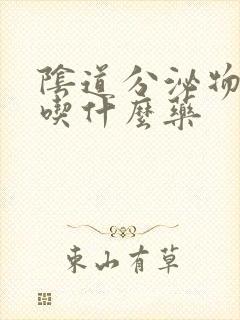 陰道分泌物
喫什麼藥
東山有草